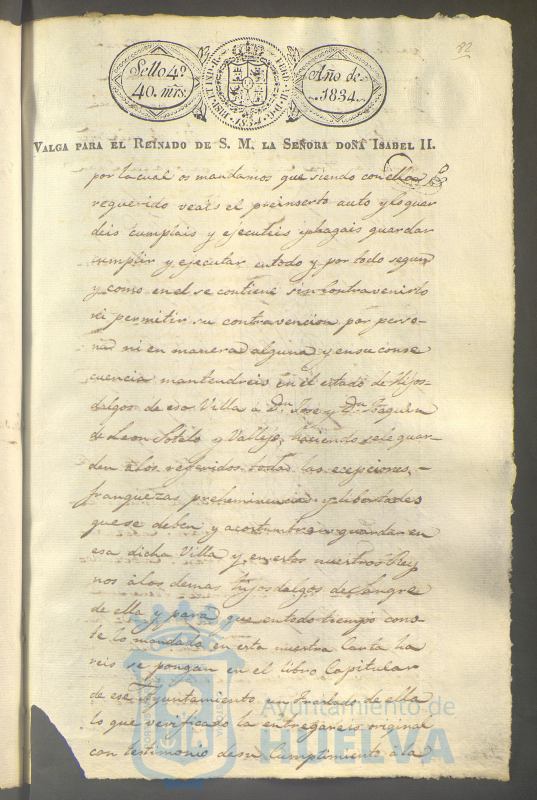 82
Sello 4º
40. mrs.
HISPANIAR.
1834
Año de
1834
VALGA PARA EL REINADO DE S. M. LA SEÑORA DOÑA ISABEL II.
por la cual os mandamos que siendo con ella
requerido veais el preinserto auto y lo guar
deis cumplais y ejecuteis y hagais guardar
cumplir y ejecutar en todo y por todo segun
y como en el se contiene sin contravenirlo
ni permitir su contravencion por perso-
na ni en manera alguna y en su conse
cuencia mantendreis en el estado de Hijos-
dalgos de esa Villa á Dn. Jose y Dn. Joaquin
de Leon Sotelo y Vallejo, haciendo se le guar-
den a los referidos todas las ecepciones,-
franquezas preheminencias y libertades
que se deben y acostumbran guardar en
esa dicha Villa y en estos nuestros Rey
nos á los demas hijosdalgos de sangre
de ella y para que en todo tiempo cons-
te lo mandado en esta nuestra Carta ha
reis se pongan en el libro Capitular
de ese Ayuntamiento un Traslado de ella
lo que verificado la entregareis original
con testimonio de su Cumplimiento á la
Ayuntamiento de
HUELVA